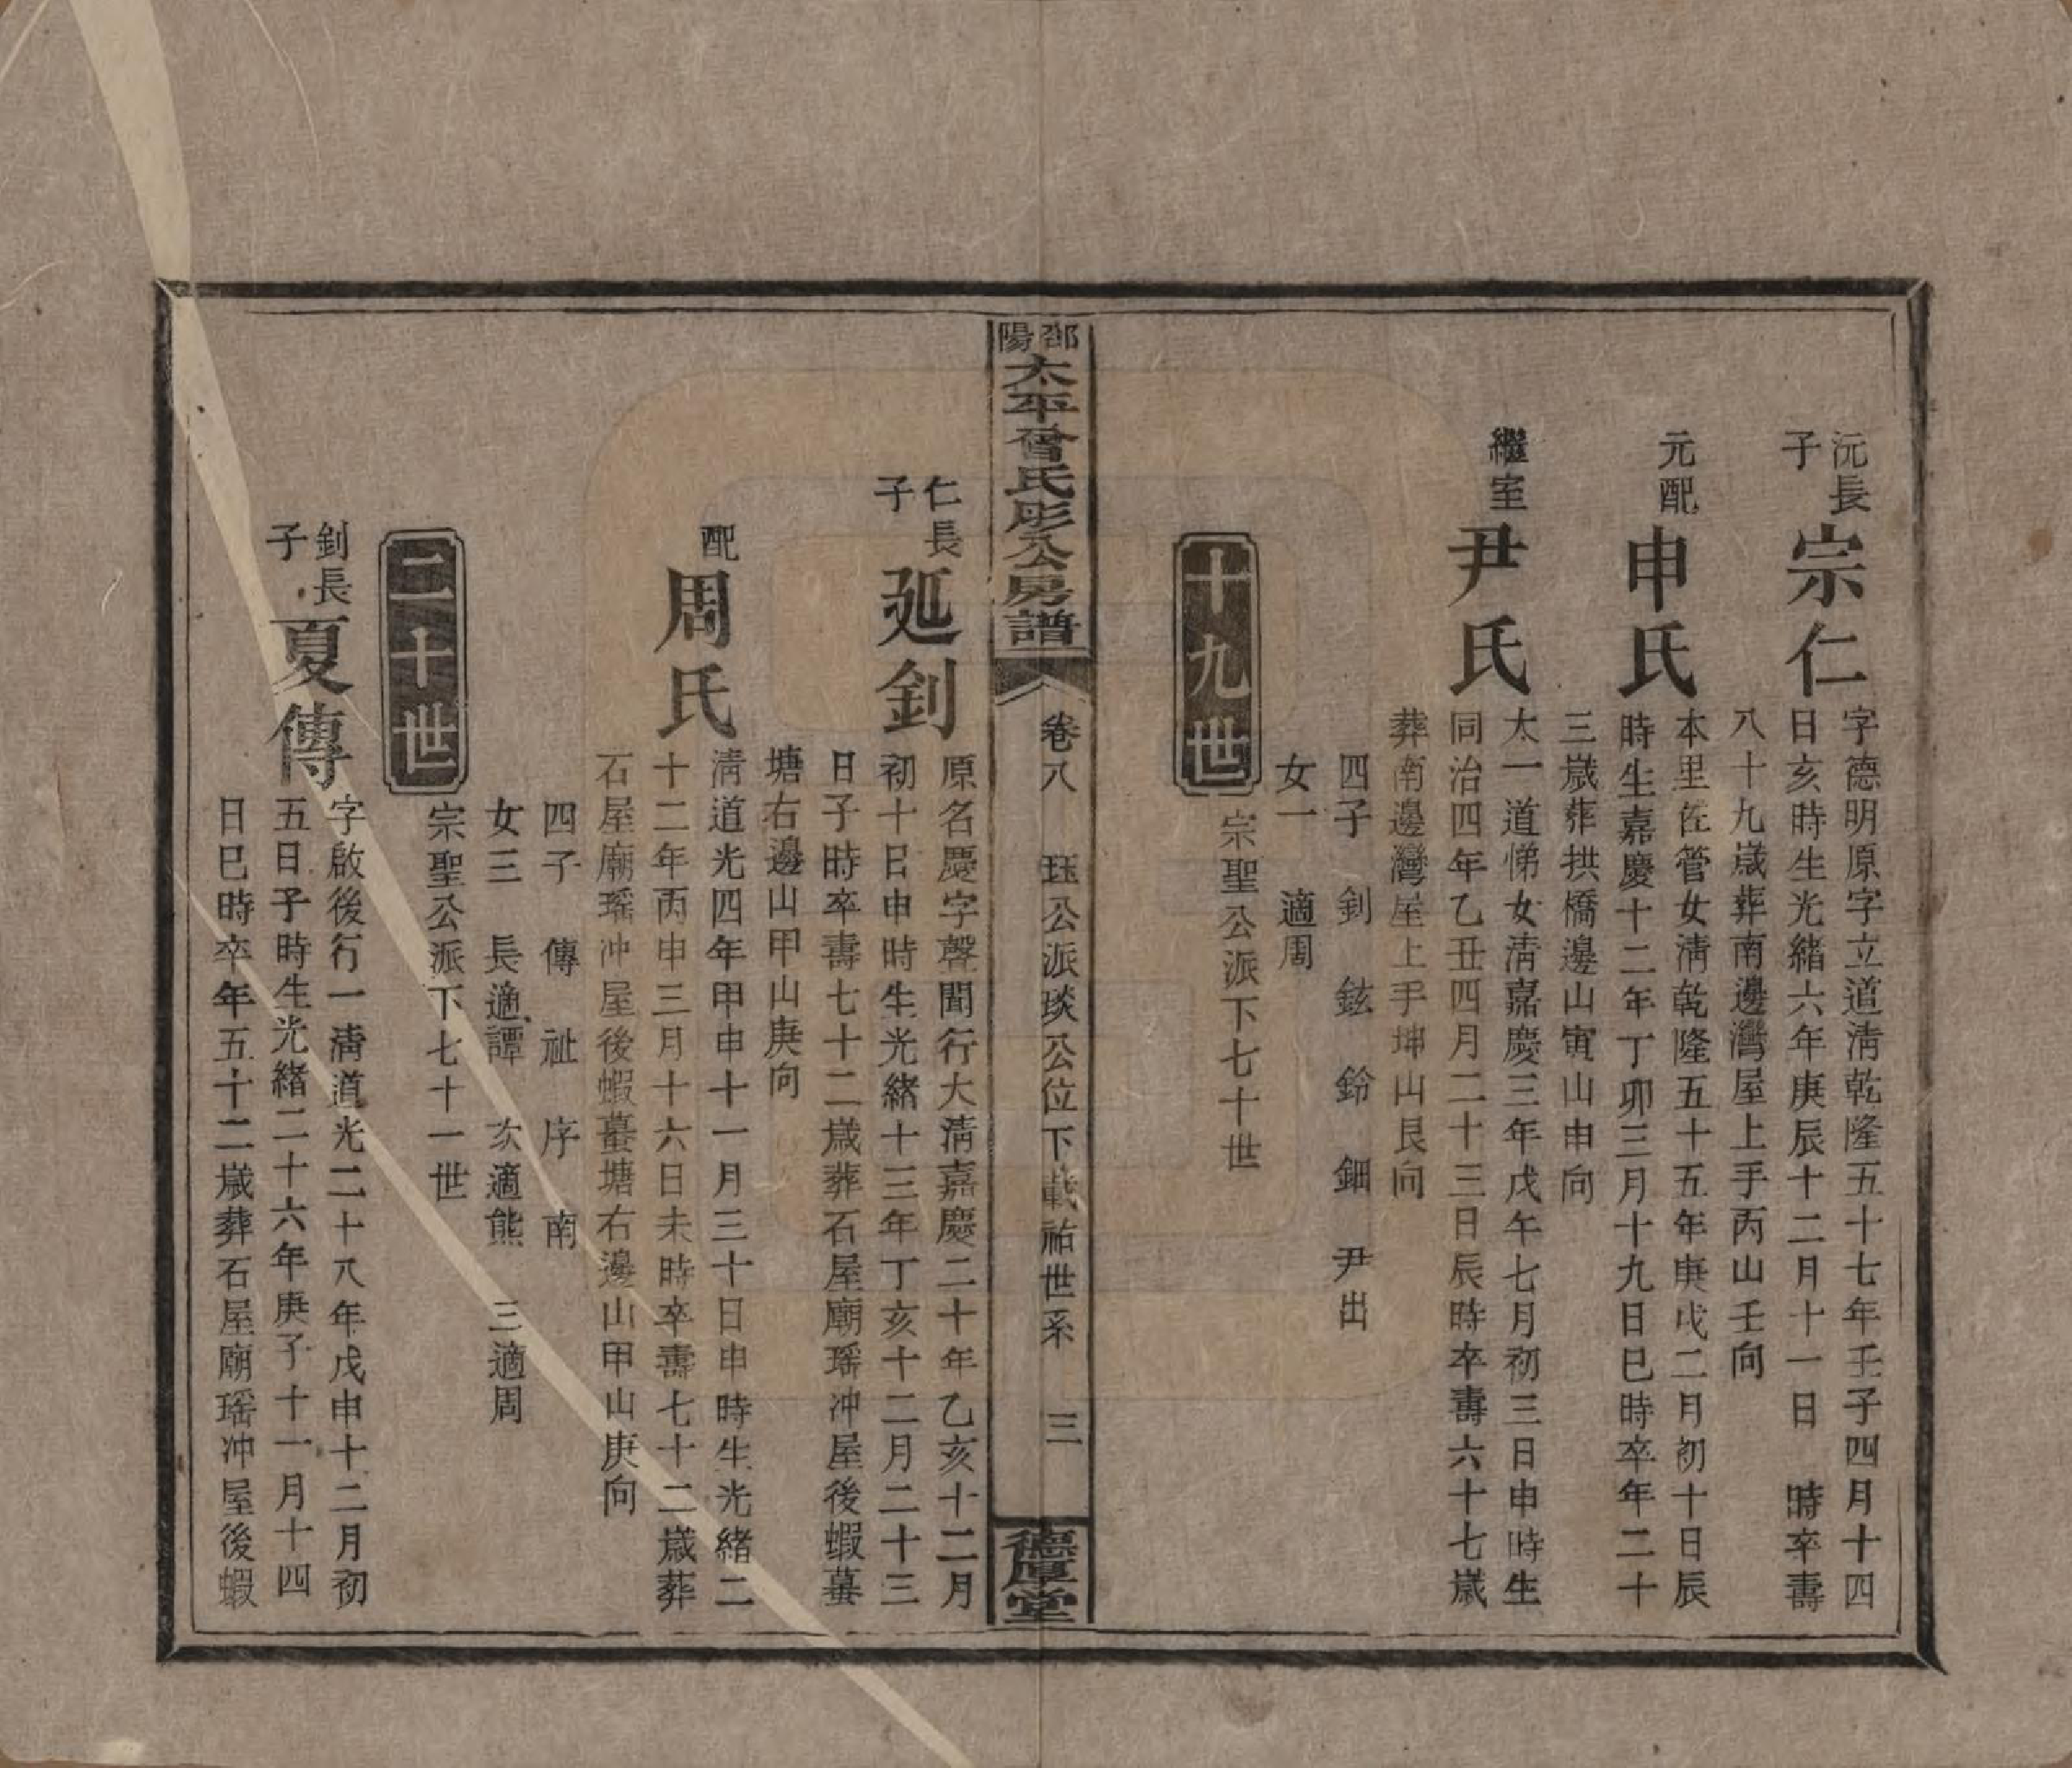 沅長子
宗仁
字德明原字立道淸乾隆五十七年壬子四月十四
日亥時生光緒六年庚辰十二月十一日 時卒壽
八十九歲葬南邊灣屋上手丙山壬向
元配
申氏
本里在管女淸乾隆五十五年庚戌二月初十日辰
時生嘉慶十二年丁卯三月十九日巳時卒年二十
三歲葬拱橋邊山寅山申向
繼室
尹氏
太一道悌女淸嘉慶三年戊午七月初三日申時生
同治四年乙丑四月二十三日辰時卒壽六十七歲
葬南邊灣屋上手坤山艮向
四子 釗 鉉 鈴 鈿 尹出
女一 適周
十九世
宗聖公派下七十世
邵陽太平曾氏彤公房譜
卷八 珏公派琰公位下載祐世系 三
德厚堂
仁長子
延釗
原名慶字聲聞行大淸嘉慶二十年乙亥十二月
初十日申時生光緒十三年丁亥十二月二十三
日子時卒壽七十二歲葬石屋廟瑤冲屋後蝦蟇
塘右邊山甲山庚向
配
周氏
淸道光四年甲申十一月三十日申時生光緒二
十二年丙申三月十六日未時卒壽七十二歲葬
石屋廟瑤冲屋後蝦蟇塘右邊山甲山庚向
四子 傳 祉 序 南
女三 長適譚 次適熊 三適周
二十世
宗聖公派下七十一世
釗長子
夏傳
字啟後行一淸道光二十八年戊申十二月初
五日子時生光緒二十六年庚子十一月十四
日巳時卒年五十二歲葬石屋廟瑤冲屋後蝦